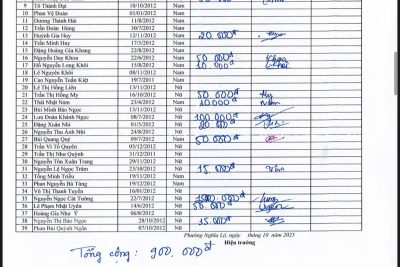 9 Tô Thành Đạt 10/10/2012 Nam
10 Phan Vệ Đoàn 01/01/2012 Nam
11 Dương Thành Hải 11/8/2012 Nam
12 Trần Đoàn Hùng 30/7/2012 Nam
13 Huỳnh Gia Huy 11/2/2012 Nam 20.000đ
14 Trần Minh Huy 17/5/2012 Nam
15 Đặng Hoàng Gia Khang 22/8/2012 Nam
16 Nguyễn Duy Khoa 22/6/2012 Nam 50.000đ
17 Hồ Nguyễn Long Khôi 15/8/2012 Nam 10.000đ
18 Lê Nguyên Khôi 08/11/2012 Nam
19 Cao Nguyễn Tuấn Kiệt 19/7/2011 Nam
20 Lê Thị Hồng Liên 13/11/2012 Nữ
21 Trần Thị Hồng My 16/10/2012 Nữ 50.000đ
22 Thái Nhật Nam 23/4/2012 Nam 10.000đ
23 Bùi Minh Bảo Ngọc 13/12/2012 Nữ
24 Lưu Đoàn Khánh Ngọc 08/7/2012 Nữ 100.000đ
25 Đặng Xuân Nhi 01/5/2012 Nữ 20.000đ
26 Nguyễn Thu Ánh Nhi 24/8/2012 Nữ
27 Bùi Quang Quý 09/7/2012 Nam 50.000đ
28 Trần Vi Tố Quyên 03/12/2012 Nữ
29 Trần Thị Như Quỳnh 31/12/2011 Nữ
30 Nguyễn Tôn Xuân Trang 29/11/2012 Nữ
31 Nguyễn Lê Ngọc Trâm 23/10/2012 Nữ 15.000đ
32 Tống Minh Triều 19/11/2012 Nam
33 Phan Nguyễn Bá Tùng 19/12/2012 Nam
34 Võ Thị Thanh Tuyền 16/01/2012 Nữ
35 Nguyễn Ngọc Cát Tường 22/7/2012 Nữ
36 Lê Phạm Nhật Uyên 14/6/2012 Nữ 50.000đ
37 Hoàng Gia Như Ý 06/8/2012 Nữ
38 Nguyễn Thị Bảo Ngọc 28/10/2012 Nữ 15.000đ
39 Phan Bùi Quỳnh Ngân 07/10/2012 Nữ
Phường Nghĩa Lộ, ngày tháng 10 năm 2025
Hiệu trưởng
Tổng cộng : 900.000đ